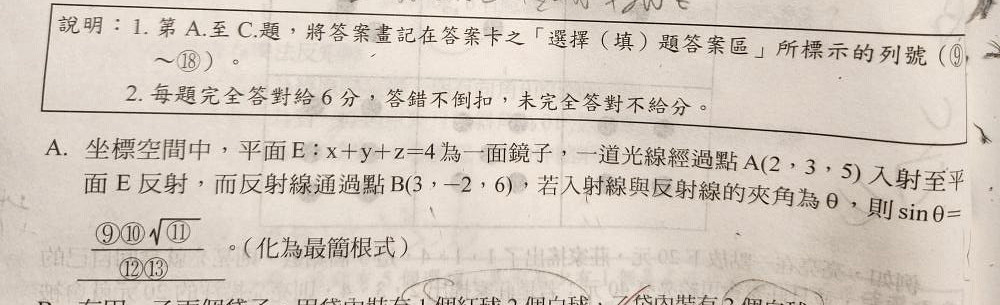 說明：1. 第 A.至 C.題，將答案畫記在答案卡之「選擇（填）題答案區」所標示的列號（⑨
～⑱）。
2. 每題完全答對給 6 分，答錯不倒扣，未完全答對不給分。
A. 坐標空間中，平面 E：x+y+z=4 為一面鏡子，一道光線經過點 A(2，3，5) 入射至平
面 E 反射，而反射線通過點 B(3，−2，6)，若入射線與反射線的夾角為 θ，則 sin θ=
⑨⑩√⑪
⑫⑬
。（化為最簡根式）